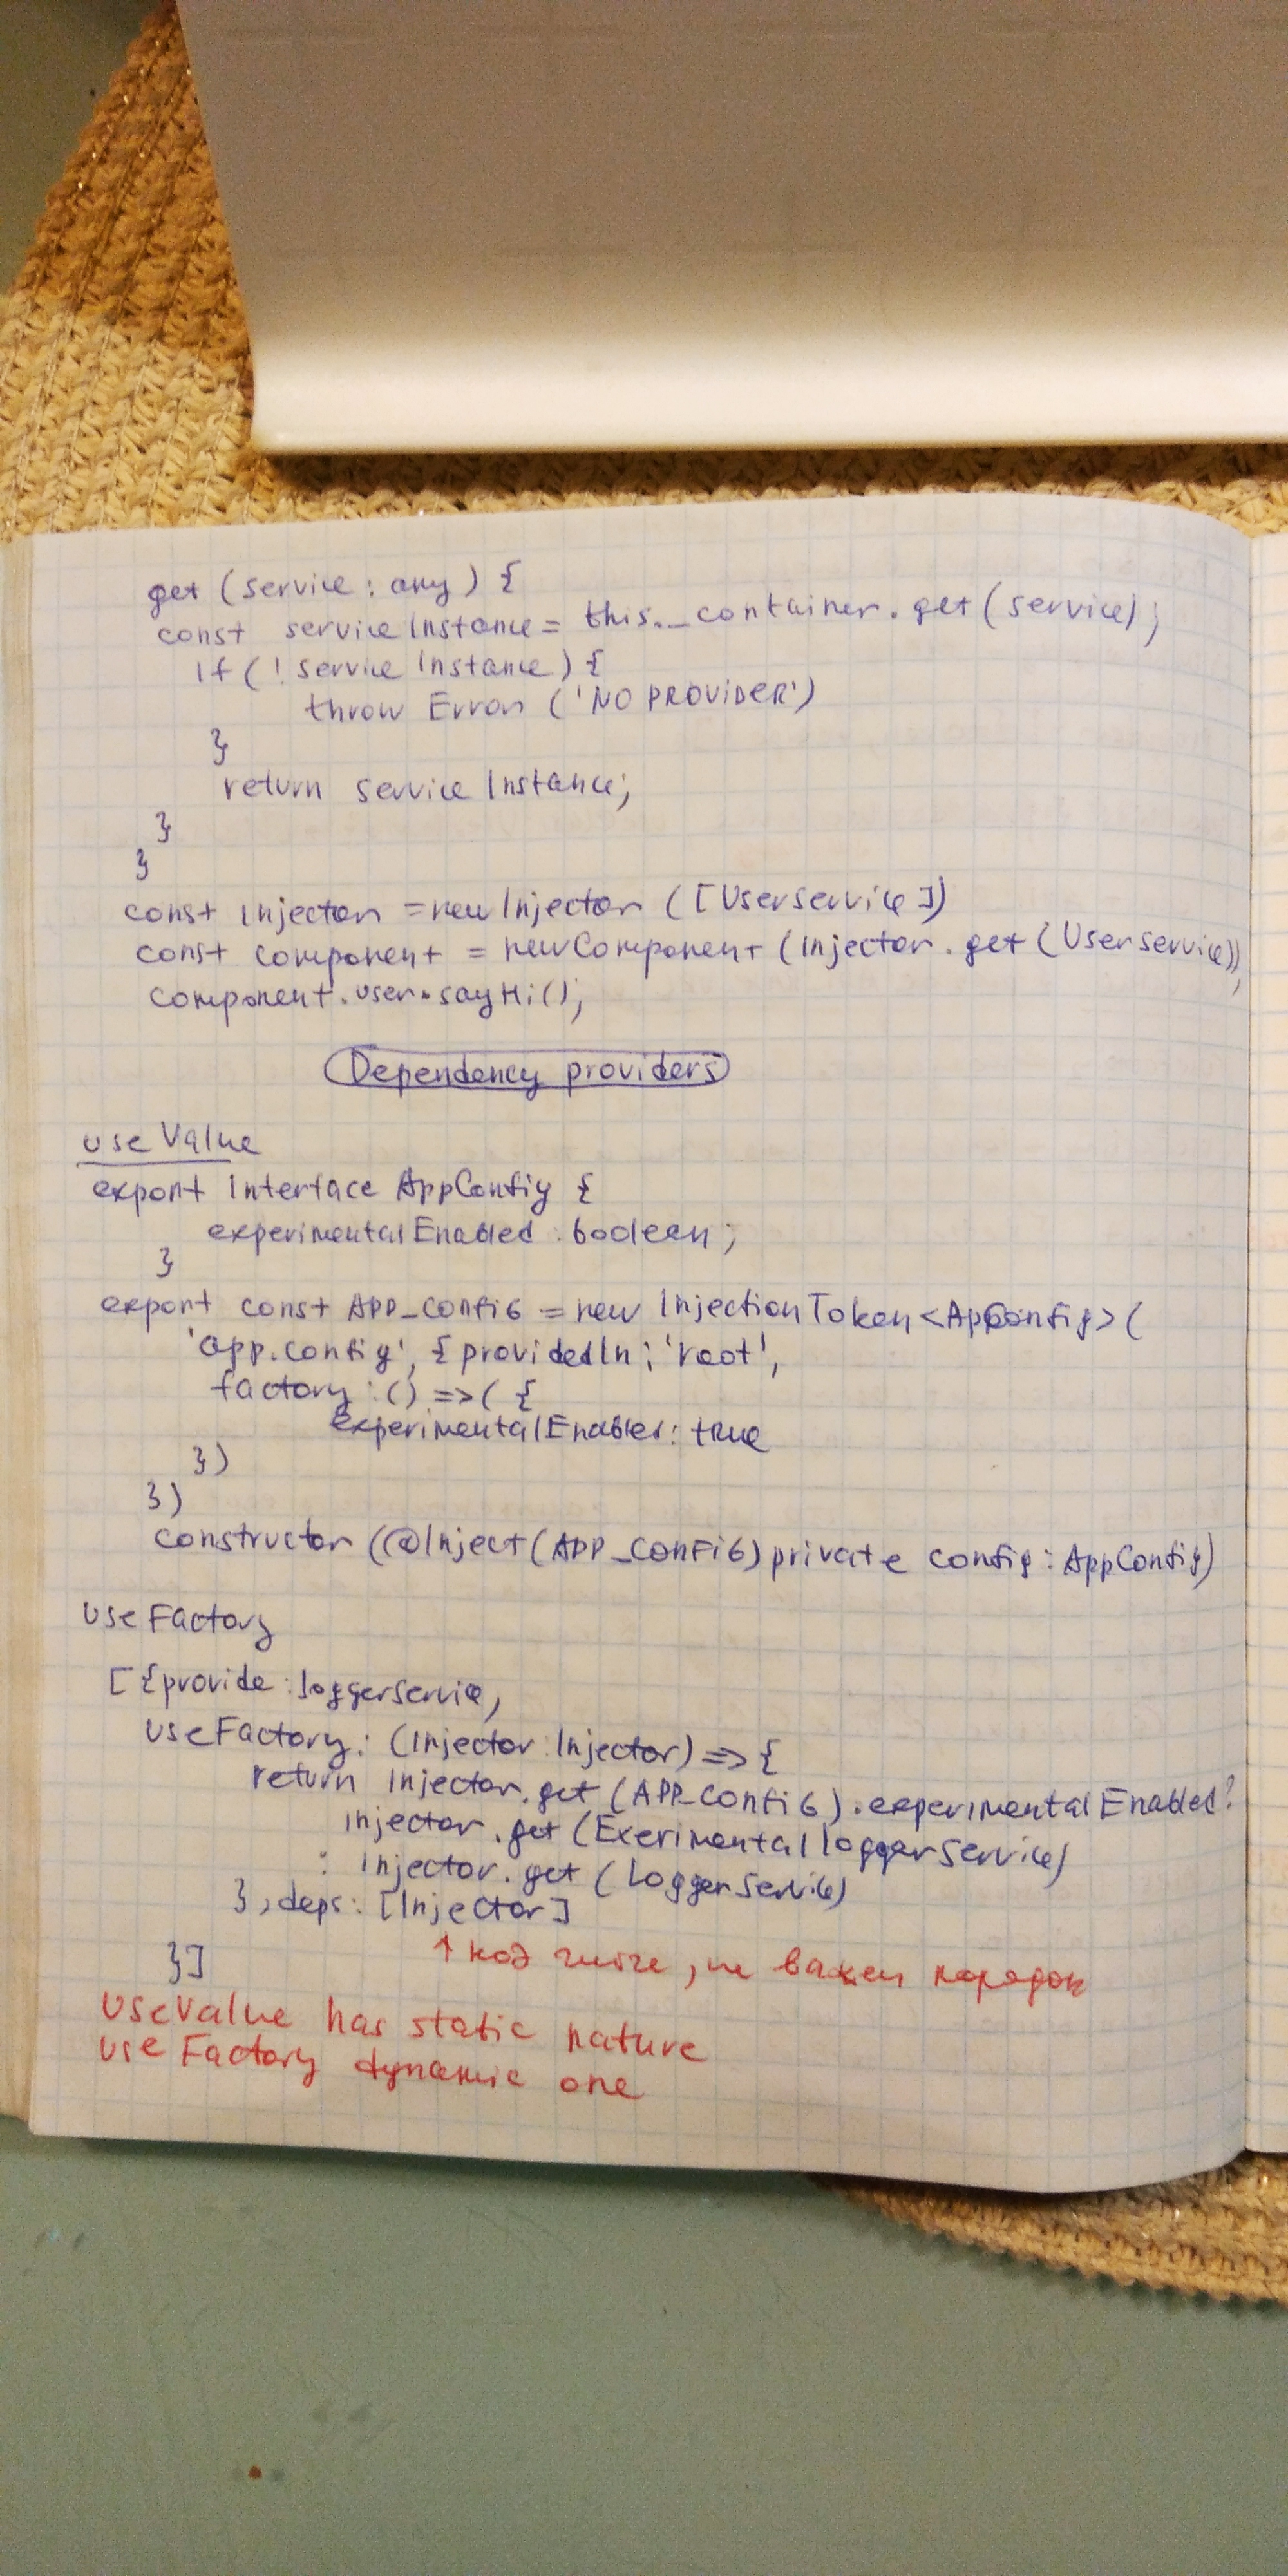 get (service : any) {
const serviceInstance = this._container.get(service);
if (!serviceInstance) {
throw Error ('NO PROVIDER')
}
return serviceInstance;
}
}
const injector = new Injector ([UserService])
const component = new Component (injector.get(UserService));
component.user.sayHi();
Dependency providers
useValue
export interface AppConfig {
experimentalEnabled : boolean;
}
export const APP_CONFIG = new InjectionToken<AppConfig>(
'app.config', {providedIn: 'root',
factory : () => ( {
experimentalEnabled: true
})
})
constructor (@Inject(APP_CONFIG) private config : AppConfig)
useFactory
[ {provide : loggerService,
useFactory: (injector: Injector) => {
return injector.get (APP_CONFIG).experimentalEnabled?
injector.get (ExerimentalloggerService)
: injector.get (LoggerService)
}, deps: [Injector]
}]
↑ код , не важен порядок
useValue has static nature
useFactory dynamic one